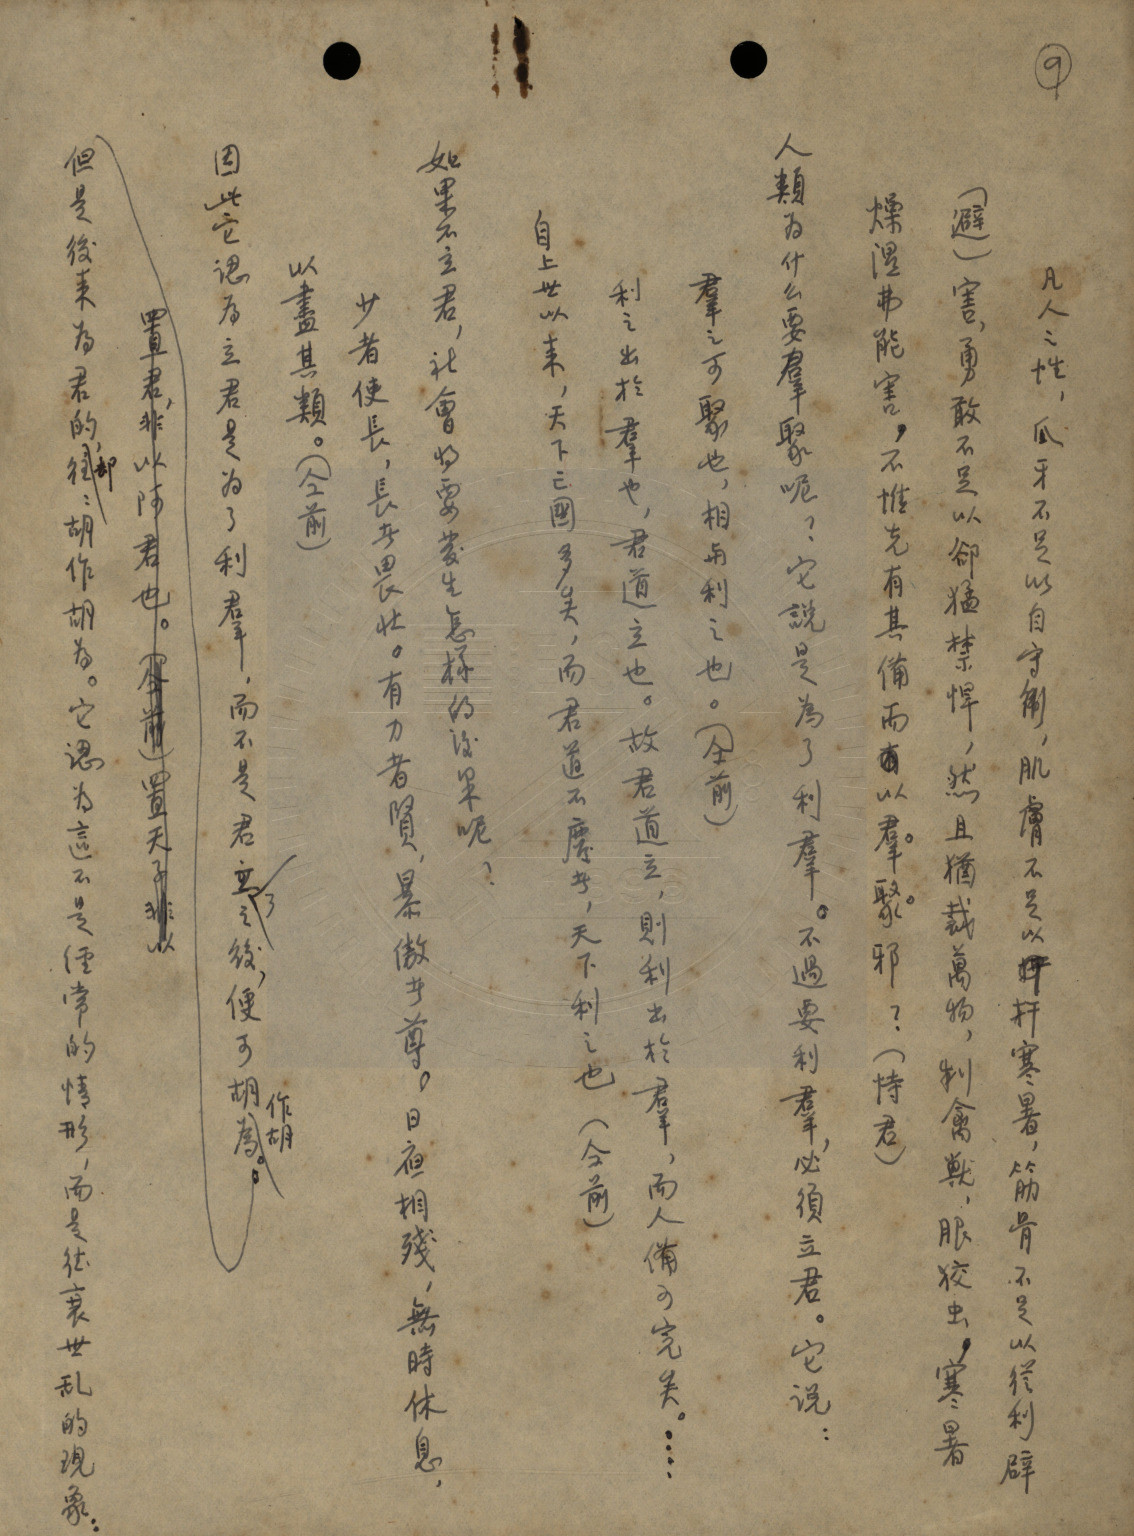 9
凡人之性，爪牙不足以自守衛，肌膚不足以扞寒暑，筋骨不足以從利辟
（避）害，勇敢不足以卻猛禁悍，然且猶裁萬物，制禽獸，服狡虫，寒暑
燥溼弗能害，不惟先有其備而以羣聚邪？（恃君）
人類为什么要羣聚呢？它說是為了利羣。不過要利羣，必須立君。它说：
羣之可聚也，相与利之也。（仝前）
利之出於羣也，君道立也。故君道立，則利出於羣，而人備可完矣。……
自上世以来，天下亡國多矣，而君道不廢者，天下利之也（仝前）
如果不立君，社會将要發生怎樣的後果呢？
少者使長，長者畏壮。有力者賢，暴傲者尊，日夜相殘，無時休息，
以盡其類。（仝前）
因此它認为立君是为了利羣，而不是君立了之後，便可胡作胡為。
置君，非以阿君也。（仝前）置天子非以
但是後来為君的，却往往胡作胡为。它認为這不是經常的情形，而是在衰世乱的現象：